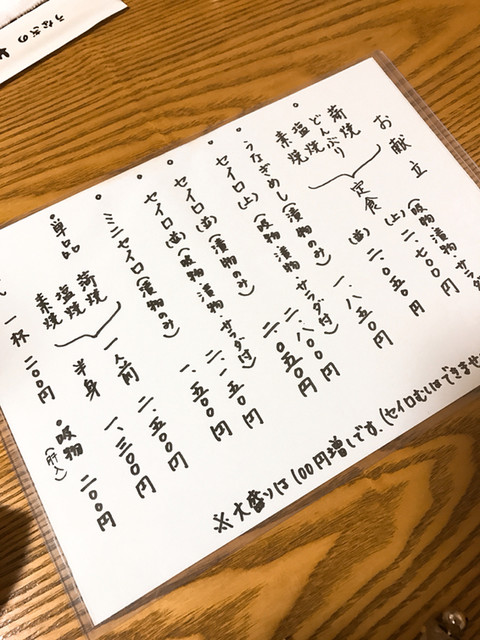 お献立
蒲焼
どんぶり
塩焼
素焼
定食
(上)(吸物・漬物・サラダ
二、七〇〇円
(並) 二、〇五〇円
・うなぎめし(漬物のみ) 一、八五〇円
・セイロ(上)(吸物・漬物・サラダ付) 二、八〇〇円
・セイロ(並)(吸物・漬物・サラダ付) 二、〇五〇円
・セイロ(並)(漬物のみ) 二、一五〇円
・ミニセイロ(漬物のみ) 一、五〇〇円
・単品
蒲焼
塩焼
素焼
一人前 二、五〇〇円
半身 一、三〇〇円
・吸物(肝入) 二〇〇円
一杯 二〇〇円
※大盛りは100円増しです。(セイロむしはできませ
うなぎの